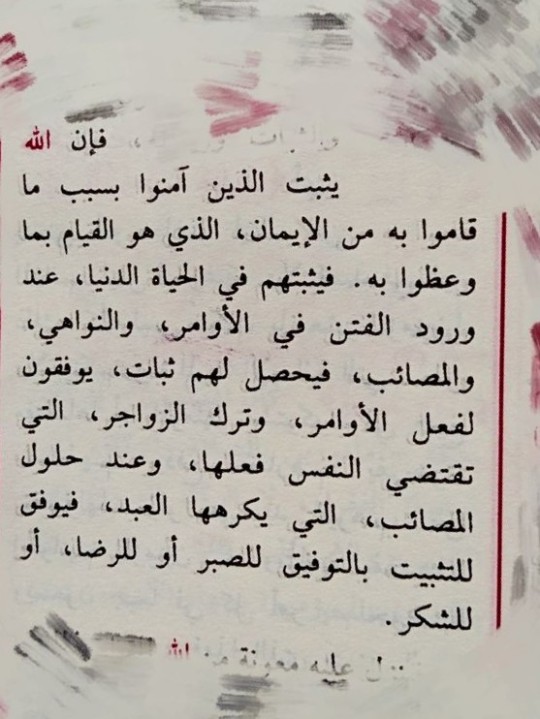 فإن الله
يثبت الذين آمنوا بسبب ما
قاموا به من الإيمان، الذي هو القيام بما
وعظوا به. فيثبتهم في الحياة الدنيا، عند
ورود الفتن في الأوامر، والنواهي،
والمصائب، فيحصل لهم ثبات، يوفقون
لفعل الأوامر، وترك الزواجر، التي
تقتضي النفس فعلها، وعند حلول
المصائب، التي يكرهها العبد، فيوفق
للتثبيت بالتوفيق للصبر أو للرضا، أو
للشكر.
الله